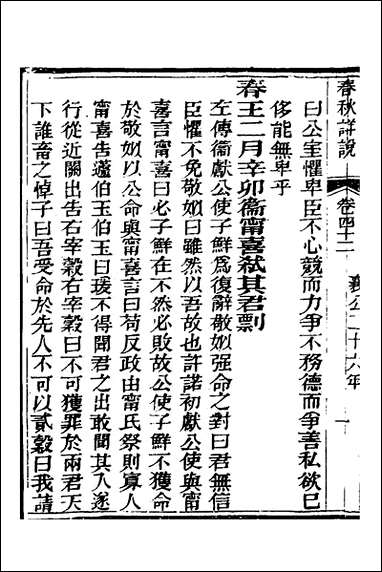 春秋詳說
卷四十二
襄公二十六年
一
曰公室懼卑臣不心競而力爭不務德而爭善私欲已
侈能無卑乎
春王二月辛卯衞甯喜弒其君剽
左傳衞獻公使子鮮爲復辭敬姒強命之對曰君無信
臣懼不免敬姒曰雖然以吾故也許諾初獻公使與甯
喜言甯喜曰必子鮮在不然必敗故公使子鮮不獲命
於敬姒以公命與甯喜言曰苟反政由甯氏祭則寡人
甯喜告蘧伯玉伯玉曰瑗不得聞君之出敢聞其入遂
行從近關出告右宰穀右宰穀曰不可獲罪於兩君天
下誰畜之悼子曰吾受命於先人不可以貳穀曰我請